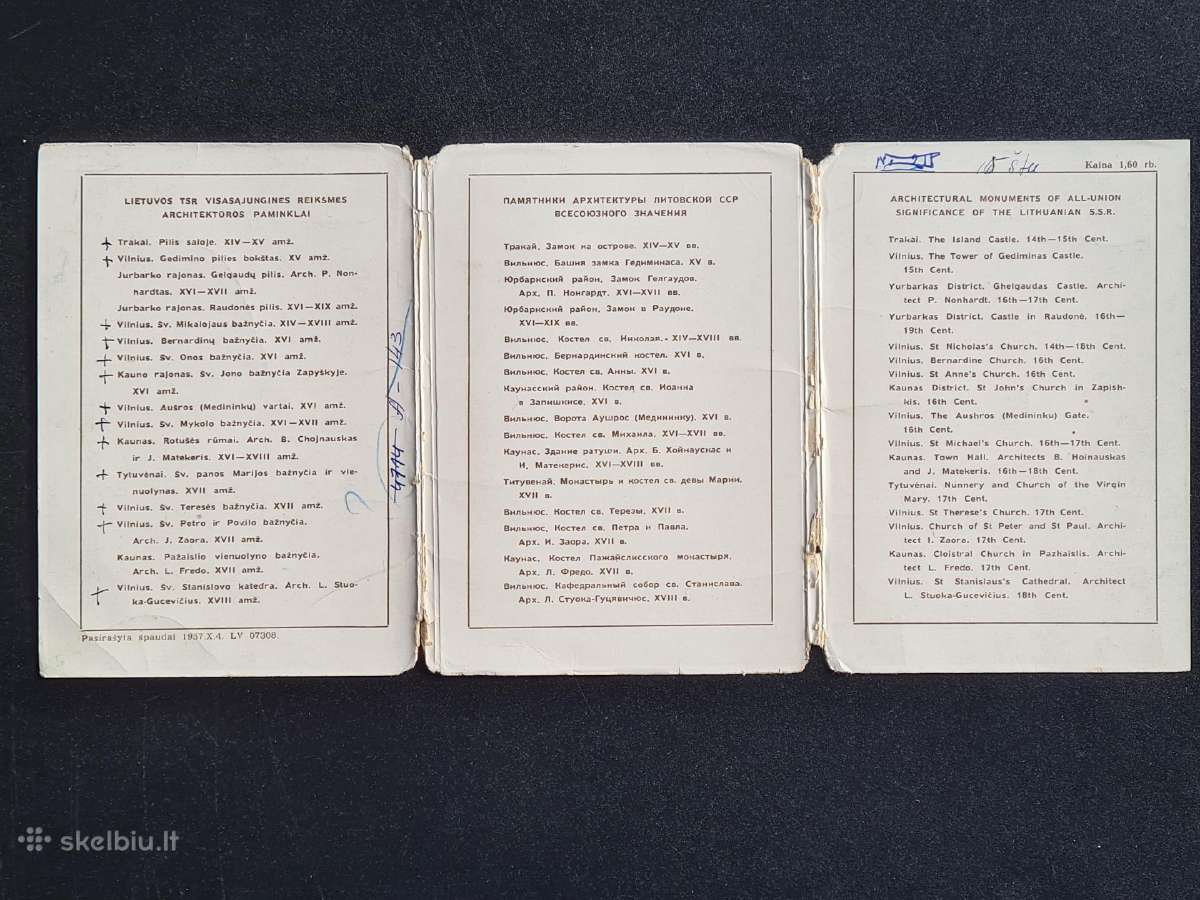 LIETUVOS TSR VISASĄJUNGINĖS REIKŠMĖS
ARCHITEKTŪROS PAMINKLAI
Trakai. Pilis saloje. XIV—XV amž.
Vilnius. Gedimino pilies bokštas. XV amž.
Jurbarko rajonas. Gelgaudų pilis. Arch. P. Non-
hardtas. XVI—XVII amž.
Jurbarko rajonas. Raudonės pilis. XVI—XIX amž.
Vilnius. Šv. Mikalojaus bažnyčia. XIV—XVIII amž.
Vilnius. Bernardinų bažnyčia. XVI amž.
Vilnius. Šv. Onos bažnyčia. XVI amž.
Kauno rajonas. Šv. Jono bažnyčia Zapyškyje.
XVI amž.
Vilnius. Aušros (Medininkų) vartai. XVI amž.
Vilnius. Šv. Mykolo bažnyčia. XVI—XVII amž.
Kaunas. Rotušės rūmai. Arch. B. Chojnauskas
ir J. Matekeris. XVI—XVIII amž.
Tytuvėnai. Šv. panos Marijos bažnyčia ir vie-
nuolynas. XVII amž.
Vilnius. Šv. Teresės bažnyčia. XVII amž.
Vilnius. Šv. Petro ir Povilo bažnyčia.
Arch. J. Zaora. XVII amž.
Kaunas. Pažaislio vienuolyno bažnyčia.
Arch. L. Fredo. XVII amž.
Vilnius. Šv. Stanislovo katedra. Arch. L. Stuo-
ka-Gucevičius. XVIII amž.
Pasirašyta spaudai 1957.X.4. LV 07308.
ПАМЯТНИКИ АРХИТЕКТУРЫ ЛИТОВСКОЙ ССР
ВСЕСОЮЗНОГО ЗНАЧЕНИЯ
Тракай. Замок на острове. XIV—XV вв.
Вильнюс. Башня замка Гедиминаса. XV в.
Юрбаркский район. Замок Гелгаудов.
Арх. П. Нонгардт. XVI—XVII вв.
Юрбаркский район. Замок в Раудоне.
XVI—XIX вв.
Вильнюс. Костел св. Николая. XIV—XVIII вв.
Вильнюс. Бернардинский костел. XVI в.
Вильнюс. Костел св. Анны. XVI в.
Каунасский район. Костел св. Иоанна
в Запишкисе. XVI в.
Вильнюс. Ворота Аушрос (Медининку). XVI в.
Вильнюс. Костел св. Михаила. XVI—XVII вв.
Каунас. Здание ратуши. Арх. Б. Хойнаускас и
И. Матекерис. XVI—XVIII вв.
Титувенай. Монастырь и костел св. девы Марии.
XVII в.
Вильнюс. Костел св. Терезы. XVII в.
Вильнюс. Костел св. Петра и Павла.
Арх. И. Заора. XVII в.
Каунас. Костел Пажайслисского монастыря.
Арх. Л. Фредо. XVII в.
Вильнюс. Кафедральный собор св. Станислава.
Арх. Л. Стуока-Гуцявичюс. XVIII в.
Kaina 1,60 rb.
ARCHITECTURAL MONUMENTS OF ALL-UNION
SIGNIFICANCE OF THE LITHUANIAN S.S.R.
Trakai. The Island Castle. 14th—15th Cent.
Vilnius. The Tower of Gediminas Castle.
15th Cent.
Yurbarkas District. Ghelgaudas Castle. Archi-
tect P. Nonhardt. 16th—17th Cent.
Yurbarkas District. Castle in Raudonė. 16th—
19th Cent.
Vilnius. St Nicholas's Church. 14th—18th Cent.
Vilnius. Bernardine Church. 16th Cent.
Vilnius. St Anne's Church. 16th Cent.
Kaunas District. St John's Church in Zapish-
kis. 16th Cent.
Vilnius. The Aushros (Medininku) Gate.
16th Cent.
Vilnius. St Michael's Church. 16th—17th Cent.
Kaunas. Town Hall. Architects B. Hoinauskas
and J. Matekeris. 16th—18th Cent.
Tytuvėnai. Nunnery and Church of the Virgin
Mary. 17th Cent.
Vilnius. St Therese's Church. 17th Cent.
Vilnius. Church of St Peter and St Paul. Archi-
tect I. Zaora. 17th Cent.
Kaunas. Cloistral Church in Pazhaislis. Archi-
tect L. Fredo. 17th Cent.
Vilnius. St Stanislaus's Cathedral. Architect
L. Stuoka-Gucevičius. 18th Cent.
skelbiu.lt